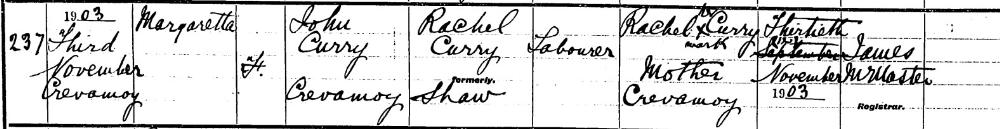 237
1903
Third
November
Crevamoy
Margaretta
F.
John
Curry
Crevamoy
Rachel
Curry
formerly.
Shaw
Labourer
Rachel X Curry
her
mark
Mother
Crevamoy
Thirtieth
September
November
1903
James
McMaster
Registrar.